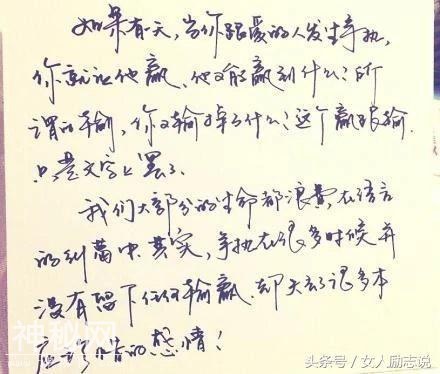 如果有一天,当你跟爱的人发生争执,
你就让他赢、他又能赢到什么?所
谓的输,你又输掉了什么?这个赢跟输,
只是文字上罢了。
我们大部分的生命都浪费,在语言
的纠葛中.其实,争执在很多时候并
没有留下任何输赢、却失去了很多本
应 的感情!
神秘网
头条号/女人励志说